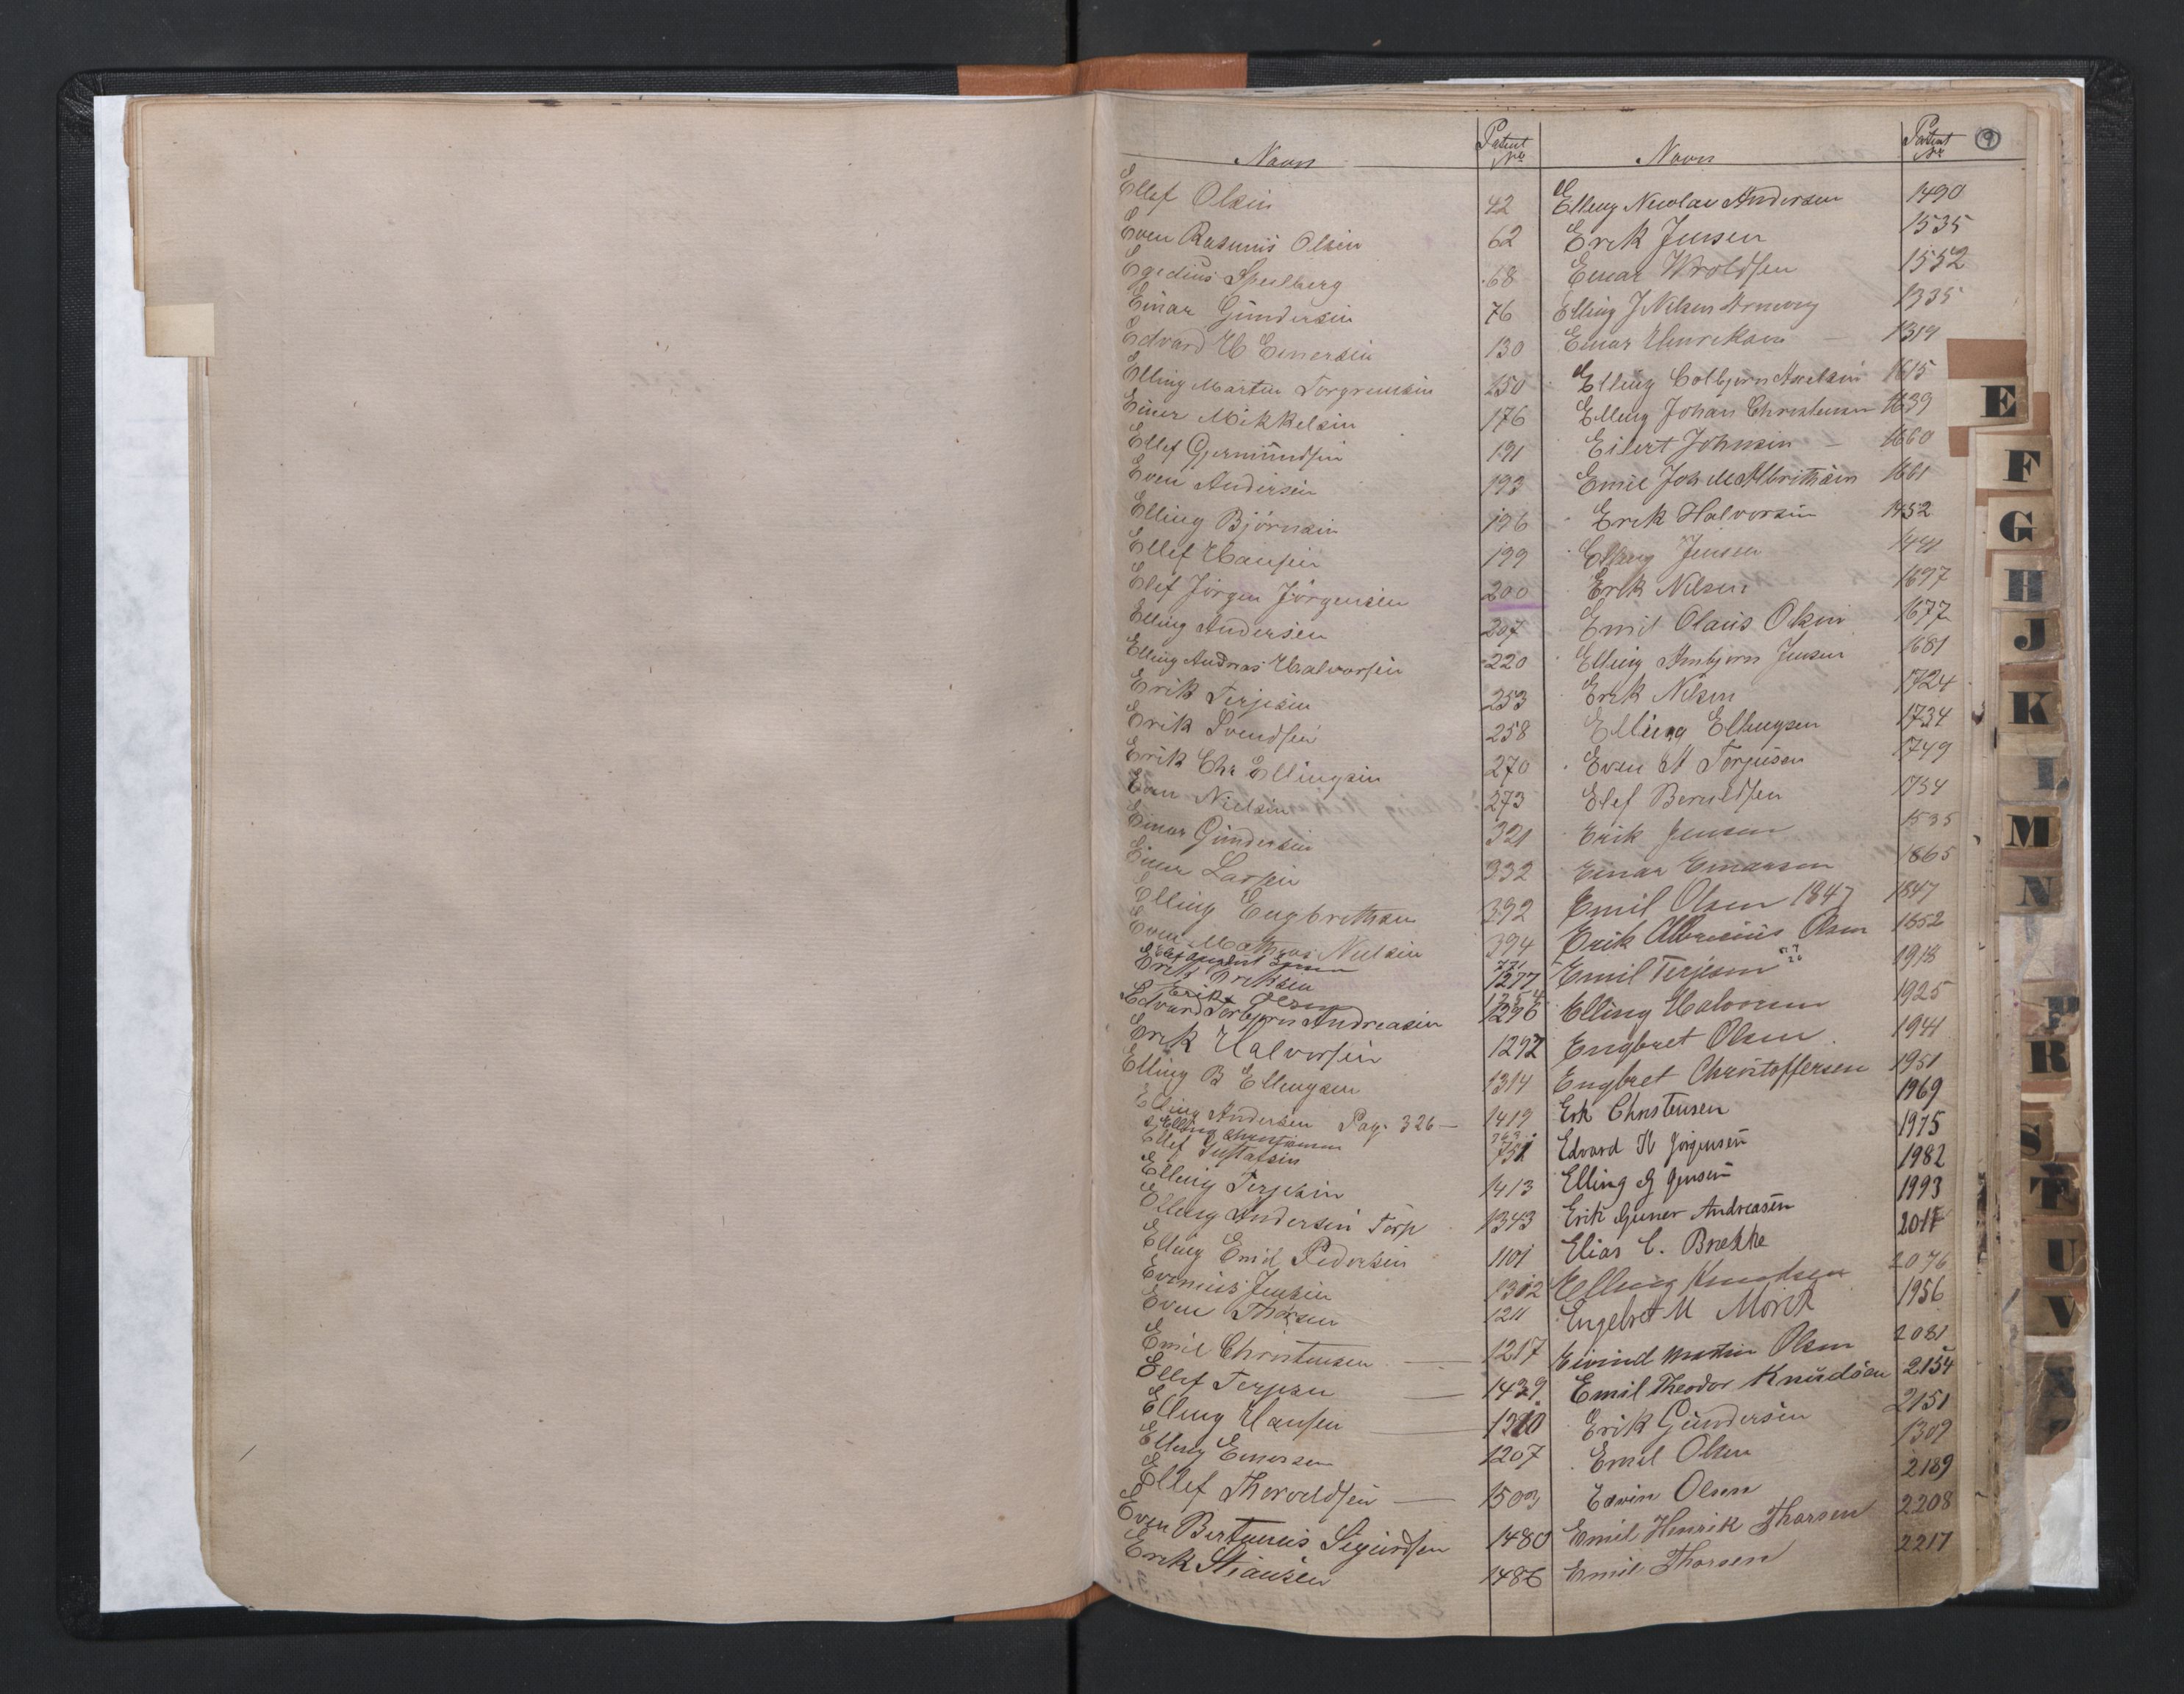 Navn Patent No
Ellef Olsen 42
Even Rasmus Olsen 62
Egedius Speilberg 68
Einar Gundersen 76
Edvard H Einersen 130
Elling Martin Torgrimsen 150
Einer Mikkelsen 176
Ellef Gjermundsen 191
Even Andersen 193
Elling Björnsen 196
Ellef Hansen 199
Elef Jörgen Jörgensen 200
Elling Andersen 207
Elling Andreas Halvorsen 220
Erik Terjesen 253
Erik Svendsen 258
Erik Chr Ellingsen 270
Even Nielsen 273
Einar Gundersen 321
Einer Larsen 332
Elling Engbrethsen 392
Even Mathias Nielsen 394
771
Erik Eriksen 1277
Erik Olsen 1254
Edvard Torbjørn Andreasen 1276
Erik Halvorsen 1292
Elling B Ellingsen 1314
Elling Andersen Pag. 326 — 1419
Elling Christiansen 763
Ellef Gustafsen 751
Elling Terjesen 1413
Elling Andersen Torp 1343
Elling Emil Pedersen 1101
Evenius Jensen 1312
Even Thorsen 1211
Emil Christensen — 1217
Ellef Terjesen — 1429
Elling Hansen — 1210
Elling Einersen 1207
Ellef Thorvaldsen — 1503
Even Bertanius Sigurdsen 1480
Erik Stiansen 1486
Navn Patent Nr 9
Elling Nicolai Andersen 1490
Erik Jensen 1535
Einar Wroldsen 1552
Elling J Nilsen 1335
Einar Henriksen — 1319
Elling Colbjørn Axelsen 1615
Elling Johan Christensen 1639
Eilert Johnsen — 1660
Emil Joh M Albrithsen 1661
Erik Halvorsen 1452
Elling Jensen 1441
Erik Nilsen 1697
Emil Olaus Olsen 1677
Elling Arnbjørn Jensen 1681
Erik Nilsen 1724
Elling Ellingsen 1734
Even A Torjusen 1749
Elef Beruldsen 1754
Erik Jensen 1535
Einar Einarsen 1865
Emil Olsen 1847 1847
Erik Albrecius Olsen 1852
Emil Terjesen 1918
Elling Halvorsen 1925
Engbret Olsen 1941
Engbret Christoffersen 1951
Erik Christensen 1969
Edvard H Jørgensen 1975
Elling G Jensen 1982
Erik Guner Andreasen 1993
Elias C. Brække 2017
Elling Knudsen 2076
Engelbret M Mörck 1956
Eivind Martin Olsen 2081
Emil Theodor Knudsen 2154
Erik Gundersen 2151
Emil Olsen 1309
Edvin Olsen 2189
Emil Henrik Thorsen 2208
Emil Thorsen 2217
E
F
G
H
J
K
L
M
N
P
R
S
T
U
V